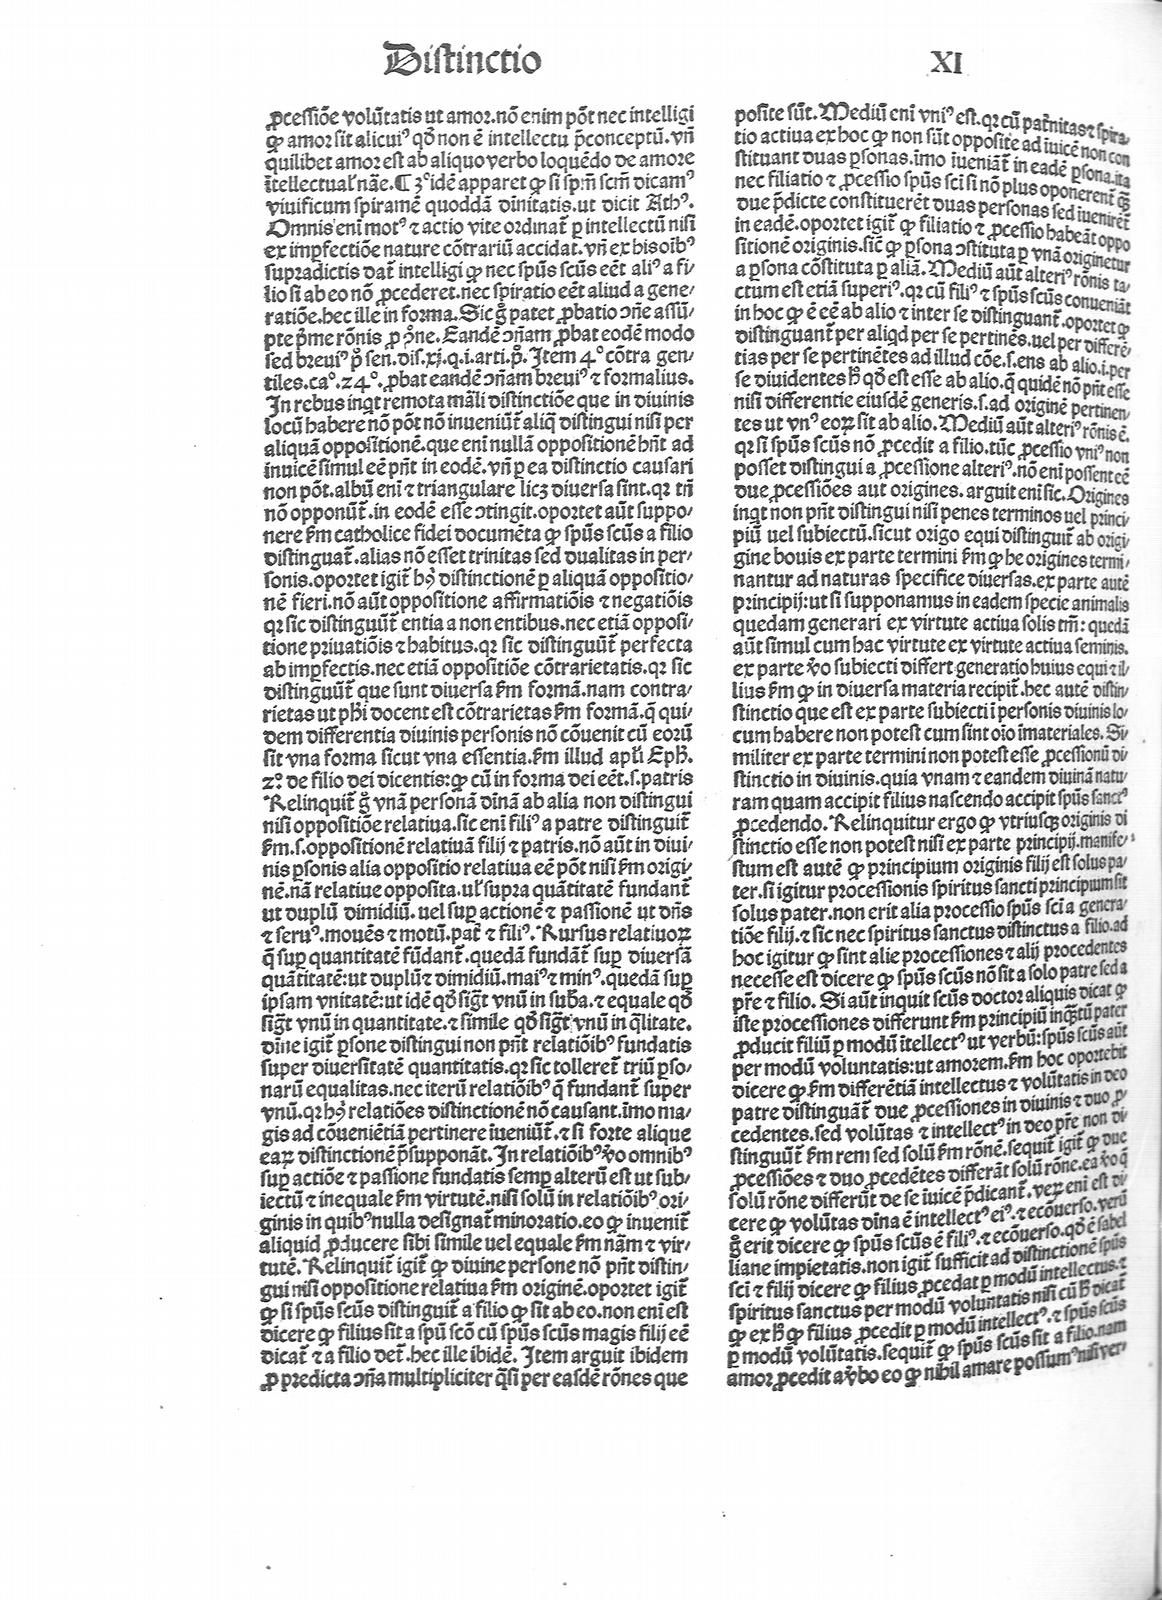 Distinctio XI
ꝓcessiōe volūtatis ut amor.nō enim pōt nec intelligi
ꝙ amor sit alicuiꝰ qd̄ non ē intellectu p̄conceptū.vn̄
quilibet amor est ab aliquo verbo loquēdo de amore
ītellectual' nāe.¶ 3ᵒ idē apparet ꝙ si spm̄ scm̄ dicamꝰ
viuificum spiramē quoddā diuitatis.ut dicit Athꝰ.
Omnis eni motꝰ ⁊ actio vite ordinat̄ ꝑ intellectū nisi
ex imꝑfectiōe nature cōtrariū accidat.vn̄ ex his oib̄ꝰ
supradictis dat̄ intelligi ꝙ nec spūs scūs eēt aliꝰ a fi⸗
lio si ab eo nō ꝓcederet.nec spiratio eēt aliud a gene⸗
ratiōe.hec ille in forma. Sic gͦ patet ꝓbatio ɔn̄e assū⸗
pte pͥme rōnis ꝓ ɔn̄e. Eandē ɔn̄am ꝓbat eodē modo
sed breuiꝰ pͦ sen̄.dis.xj.q.i.arti.pͦ. Item 4ᵒ cōtra gen⸗
tiles.caᵒ.24ᵒ.ꝓbat eandē ɔn̄am breuiꝰ ⁊ formalius.
In rebus inqt remota māli distinctiōe que in diuinis
locū habere nō pōt nō inueniūt̄ aliq̄ distingui nisi per
aliquā oppositionē.que eni nullā oppositionē hn̄t ad
inuicē simul eē pn̄t in eodē.vn̄ ꝑ ea distinctio causari
non pōt.albū eni ⁊ triangulare licꝫ diuersa sint.qr tn̄
nō opponūt̄.in eodē esse ɔtingit.oportet aūt suppo⸗
nere ẜm catholice fidei documēta ꝙ spūs scūs a filio
distinguat̄.alias nō esset trinitas sed dualitas in per⸗
sonis.oportet igit̄ hꝰ distinctionē ꝑ aliquā oppositio⸗
nē fieri.nō aūt oppositione affirmatiōis ⁊ negatiōis
qr sic distinguūt̄ entia a non entibus.nec etiā opposi⸗
tione priuatiōis ⁊ habitus.qr sic distinguūt̄ perfecta
ab imꝑfectis.nec etiā oppositiōe cōtrarietatis.qr sic
distinguūt̄ que sunt diuersa ẜm formā.nam contra⸗
rietas ut phi docent est cōtrarietas ẜm formā.q̄ qui⸗
dem differentia diuinis personis nō cōuenit cū eorū
sit vna forma sicut vna essentia.ẜm illud apl'i Eph̄.
2ᵒ. de filio dei dicentis:ꝙ cū in forma dei eēt.s.patris
Relinquit̄ gͦ vnā personā diuā ab alia non distingui
nisi oppositiōe relatiua.sic eni filiꝰ a patre distinguit̄
ẜm.s.oppositionē relatiuā filij ⁊ patris.nō aūt in diui⸗
nis ꝑsonis alia oppositio relatiua eē pōt nisi ẜm origi⸗
nē.nā relatiue opposita.ul' supra quātitatē fundant̄
ut duplū dimidiū. uel suꝑ actionē ⁊ passionē ut dn̄s
⁊ seruꝰ.mouēs ⁊ motū.pat̄ ⁊ filiꝰ. Rursus relatiuoꝝ
q̄ suꝑ quantitatē fūdant̄.quedā fundāt̄ suꝑ diuersā
quātitatē:ut duplū ⁊ dimidiū.maiꝰ ⁊ minꝰ.quedā suꝑ
ipsam vnitatē:ut idē qd̄ siḡt vnū in sub̄a.⁊ equale qd̄
siḡt vnū in quantitate.⁊ simile qd̄ siḡt vnū in q̄litate.
diuine igit̄ ꝑsone distingui non pn̄t relatiōib̄ꝰ fundatis
super diuersitatē quantitatis.qr sic tolleret̄ triū ꝑso⸗
narū equalitas.nec iterū relatiōib̄ꝰ q̄ fundant̄ super
vnū.qr hꝰ relatiōes distinctionē nō causant.īmo ma⸗
gis ad cōueniētiā pertinere īueniūt̄.⁊ si forte alique
eaꝝ distinctionē p̄supponāt. In relatiōib̄ꝰ ꝟo omnib̄ꝰ
suꝑ actiōe ⁊ passione fundatis semꝑ alterū est ut sub⸗
iectū ⁊ inequale ẜm virtutē.nisi solū in relatiōib̄ꝰ ori⸗
ginis in quib̄ꝰ nulla designat̄ minoratio.eo ꝙ inuenit̄
aliquid ꝓducere sibi simile uel equale ẜm nām ⁊ vir⸗
tutē. Relinquit̄ igit̄ ꝙ diuine persone nō pn̄t distin⸗
gui nisi oppositione relatiua ẜm originē.oportet igit̄
ꝙ si spūs scūs distinguit̄ a filio ꝙ sit ab eo.non eni est
dicere ꝙ filius sit a spū scō cū spūs scūs magis filij eē
dicat̄ ⁊ a filio det̄.hec ille ibidē. Item arguit ibidem
ꝓ predicta ɔn̄a multipliciter q̄si per easdē rōnes que
posite sūt. Mediū eni vniꝰ est.qr cū pat̄nitas ⁊ spira⸗
tio actiua ex hoc ꝙ non sūt opposite ad īuicē non con
stituant duas ꝑsonas.īmo īueniāt̄ in eadē ꝑsona.ita
nec filiatio ⁊ ꝓcessio spūs sci si nō plus oponerent̄ q̄ꝫ
due p̄dicte constituerēt duas personas sed īueniret̄
in eadē.oportet igit̄ ꝙ filiatio ⁊ ꝓcessio habeāt oppo
sitionē originis.sic̄ ꝙ ꝑsona ɔstituta ꝑ vnā originetur
a ꝑsona cōstituta ꝑ aliā. Mediū aūt alteriꝰ rōnis ta⸗
ctum est etiā superiꝰ.qr cū filiꝰ ⁊ spūs scūs conueniāt
in hoc ꝙ ē eē ab alio ⁊ inter se distinguant̄.oportet ꝙ
distinguant̄ per aliqd per se pertinēs.uel per differē⸗
tias per se pertinētes ad illud cōe.s.ens ab alio.i.per
se diuidentes h̄ qd̄ est esse ab alio.q̄ quidē nō pn̄t esse
nisi differentie eiusdē generis.s.ad originē pertinen⸗
tes ut vnꝰ eoꝝ sit ab alio. Mediū aūt alteriꝰ rōnis ē.
qr si spūs scūs nō ꝓcedit a filio.tūc ꝓcessio vniꝰ non
posset distingui a ꝓcessione alteriꝰ.nō eni possent eē
due ꝓcessiōes aut origines. arguit eni sic. Origines
inqt non pn̄t distingui nisi penes terminos uel princi⸗
piū uel subiectū.sicut origo equi distinguit̄ ab origi⸗
gine bouis ex parte termini ẜm ꝙ he origines termi⸗
nantur ad naturas specifice diuersas.ex parte autē
principij:ut si supponamus in eadem specie animalis
quedam generari ex virtute actiua solis tm̄: quedā
aūt simul cum hac virtute ex virtute actiua seminis.
ex parte ꝟo subiecti differt generatio huius equi ⁊ il⸗
lius ẜm ꝙ in diuersa materia recipit̄.hec autē distin⸗
stinctio que est ex parte subiecti ī personis diuinis lo⸗
cum habere non potest cum sint oīo imateriales. Si⸗
militer ex parte termini non potest esse ꝓcessionū di⸗
stinctio in diuinis.quia vnam ⁊ eandem diuinā natu⸗
ram quam accipit filius nascendo accipit spūs sanctꝰ
ꝓcedendo. Relinquitur ergo ꝙ vtriusqꝫ originis di
stinctio esse non potest nisi ex parte principij.manife⸗
stum est autē ꝙ principium originis filij est solus pa⸗
ter.si igitur processionis spiritus sancti principium sit
solus pater.non erit alia processio spūs sci a genera⸗
tiōe filij.⁊ sic nec spiritus sanctus distinctus a filio.ad
hoc igitur ꝙ sint alie processiones ⁊ alij procedentes
necesse est dicere ꝙ spūs scūs nō sit a solo patre sed a
pr̄e ⁊ filio. Si aūt inquit scūs doctor aliquis dicat ꝙ
iste processiones differunt ẜm principiū inq̄ꝫtū pater
ꝓducit filiū ꝑ modū ītellectꝰ ut verbū:spūs scūs aūt
per modū voluntatis:ut amorem.ẜm hoc oportebit
dicere ꝙ ẜm differētiā intellectus ⁊ volūtatis in deo
patre distinguāt̄ due ꝓcessiones in diuinis ⁊ duo ꝓ⸗
cedentes.sed volūtas ⁊ intellectꝰ in deo pr̄e non di⸗
stinguūt̄ ẜm rem sed solū ẜm rōnē.sequit̄ igit̄ ꝙ due
ꝓcessiōes ⁊ duo ꝓcedētes differāt solū rōne.ea ꝟo q̄
solū rōne differūt de se īuicē p̄dicant̄.veꝝ eni est di⸗
cere ꝙ volūtas diuina ē intellectꝰ eiꝰ.⁊ ecōuerso.verū
gͦ erit dicere ꝙ spūs scūs ē filiꝰ.⁊ ecōuerso.qd̄ ē sabel
liane impietatis.non igit̄ sufficit ad distinctionē spūs
sci ⁊ filij dicere ꝙ filius ꝓcedat ꝑ modū intellectus.⁊
spiritus sanctus per modū voluntatis nisi cū h̄ dicat̄
ꝙ ex h̄ ꝙ filius ꝓcedit ꝑ modū intellectꝰ.⁊ spūs scūs
ꝑ modū volūtatis.sequit̄ ꝙ spūs scūs sit a filio.nam
amor ꝓcedit a ꝟbo eo ꝙ nihil amare possumꝰ nisi ver⸗